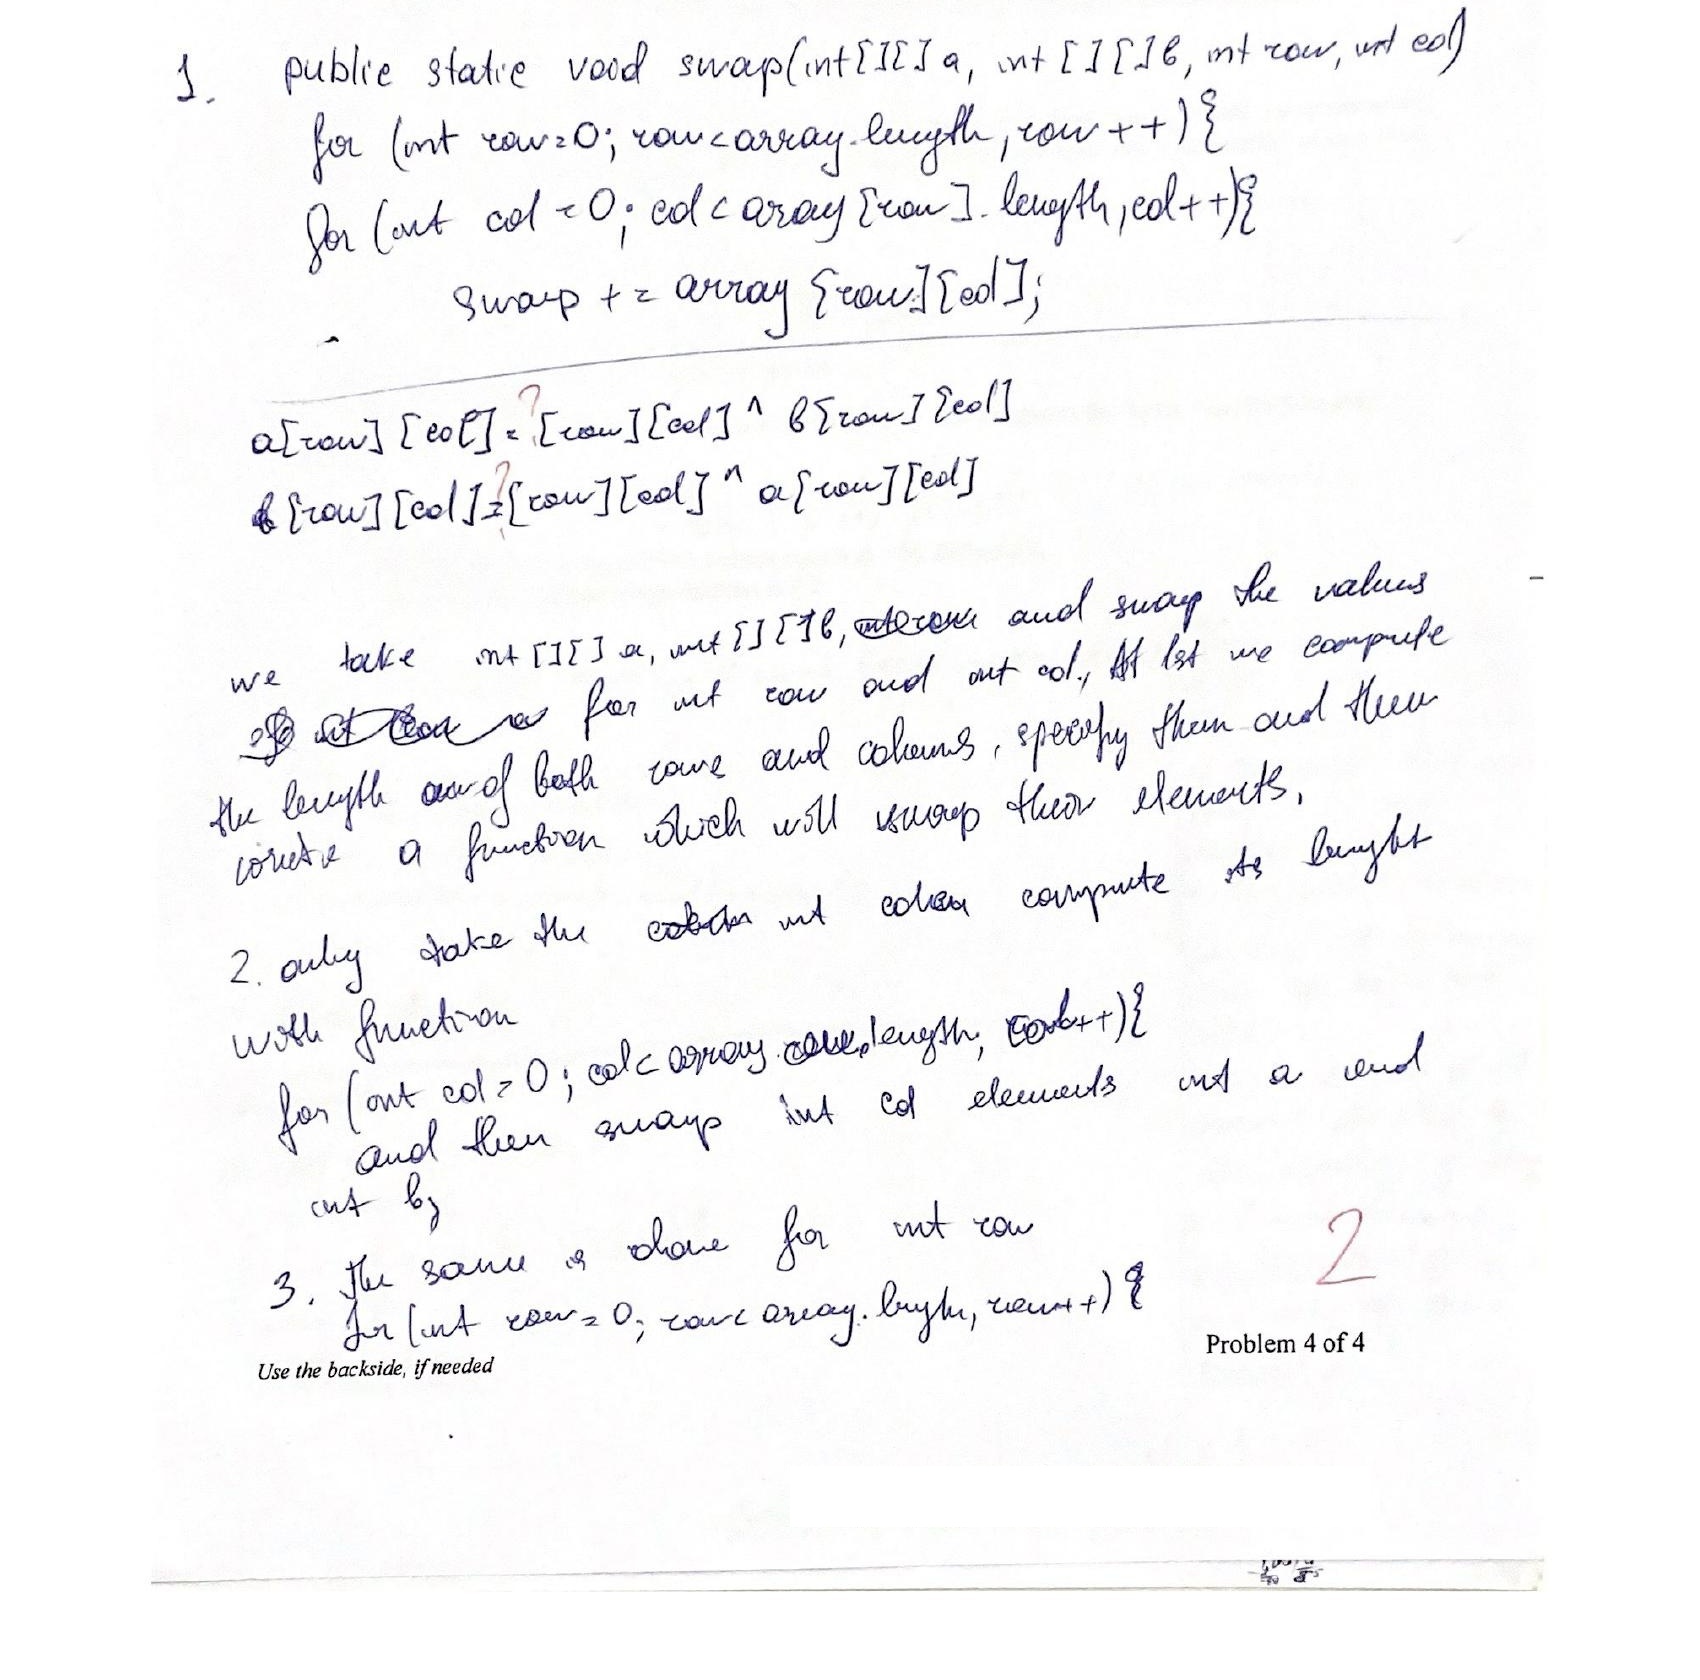 1. public static void swap(int[][] a, int[][] b, int row, int col)
for (int row=0; row<array.length, row++){
for (int col=0; col<array[row].length, col++){
swap += array[row][col];
a[row][col]=[row][col]^ b[row][col]
?
b[row][col]=[row][col]^ a[row][col]
?
we take int[][] a, int[][] b, and swap the values
for int row and int col., At 1st we compute
the length of both rows and columns, specify them and then
a function which will swap their elements.
2. only take the int compute its lenght
with function
for (int col=0; col<array.length, col++){
and then swap int col elements int a and
int b;
3. The same is done for int row
for (int row=0; row<array.length, row++){
2
Use the backside, if needed
Problem 4 of 4